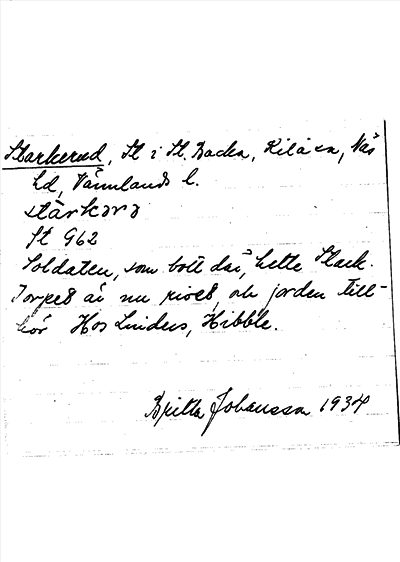 Starkerud, St i St. Backa, Kila sn, Näs
hd, Värmlands l.
stàrkərə
St 962
Soldaten, som bott där, hette Stark.
Torpet är nu rivet, och jorden till-
hör Hos Linders, Hibble.
Britta Johansson 1934